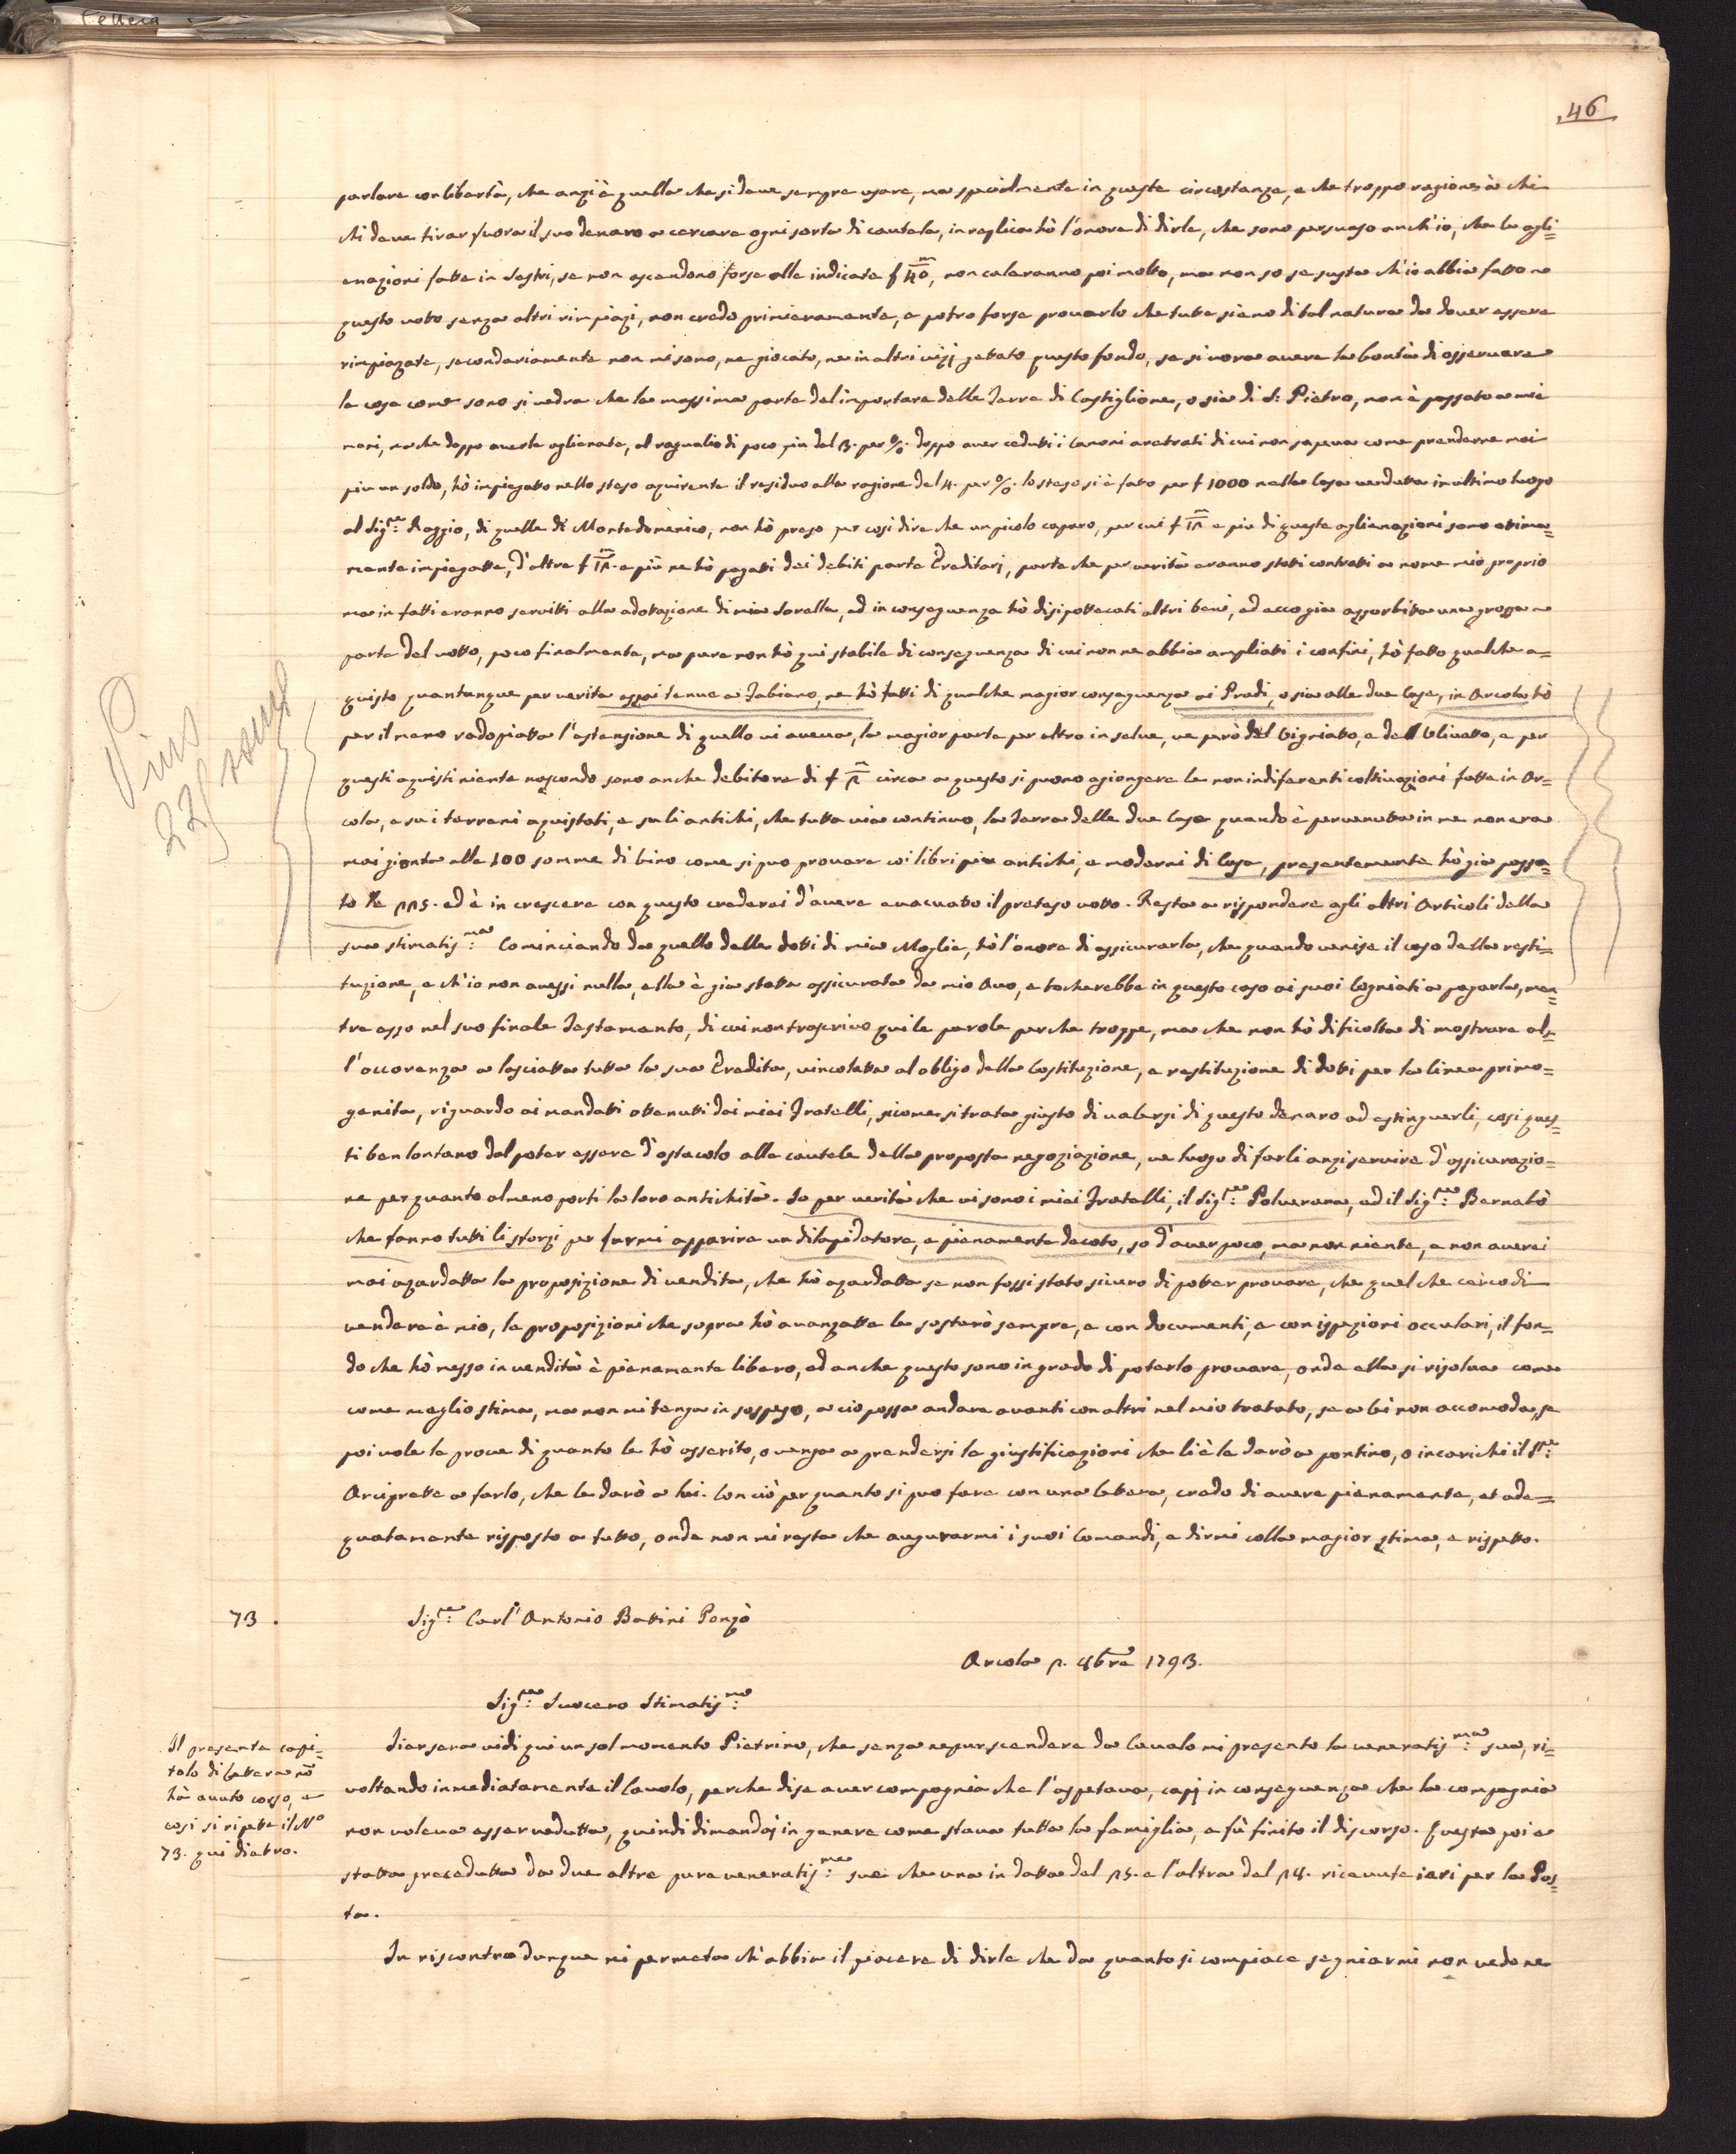 46
parlare con libertà, che anzi è quella che si deve sempre usare, ma specialmente in queste circostanze, e che troppo ragione à chi
chi deve tirar fuora il suo denaro a cercare ogni sorta di cautela, in replica hò l'onore di dirle, che sono persuaso anch'io, che le agli=
enazioni fatte in Sestri, se non ascendono forse alle indicate f 40, non caleranno poi molto, ma non so se susta ch'io abbia fatto
questo voto senza altri rimpiazi, non credo primieramente, e potro forse provarlo che tutte siano di tal natura da dover essere
rimpiazate, secondariamente non mi sono, ne giocato, ne in altri vizj gettato questo fondo, se si vora avere la bontà di osservare
le cose come sono si vedra che la massima parte del importare delle Terre di Castiglione, o sia di S: Pietro, non è passato a mie
mani, ma che doppo averle aglienate, al raguaglio di poco piu del 3. per %. doppo aver ceduti i Canoni aretrati di cui non sapeva come prenderne mai
piu un soldo, hò impiegatto nello steso aquirente il residuo alla ragione del 4. per %. lo steso si è fatto per f 1000 nella Casa venduta in ultimo luogo
al Sig:re Raggio, di quelle di Montedomenico, non hò preso per cosi dire che un picolo caparo, per cui f e piu di queste aglienazioni sono otima=
mente impiegatte, d'altre f e più ne hò pagatti dei debiti parte Ereditarj, parte che per verità eranno stati contratti a nome mio proprio
ma in fatti eranno servitti alla adotazione di mia Sorella, ed in conseguenza hò disipottecati altri beni, ed ecco gia assorbitta una grossa
parte del votto, poco finalmente, ma pure non hò qui stabile di conseguenza di cui non ne abbia ampliatti i confini, hò fatto qualche a=
quisto quantunque per verita assai tenue a Fabiano, ne hò fatti di qualche magior conseguenza ai Pradi, o sia alle due Case, in Arcola hò
per il meno radopiatta l'estensione di quello vi aveva, la magior parte per altro in selve, ve però del Vigniatto, e del Ulivatto, e per
questi aquisti niente nascondo sono anche debitore di f circa a questo si puono agiongere le non indiferenti coltivazioni fatte in Ar=
cola, e su i terreni aquistati, e su li antichi, che tutta via continuo, la Terra delle due Case quando è pervenuta in me non era
mai gionta alle 100 somme di vino come si puo provare coi libri piu antichi, e moderni di Casa, presentemente hò gia passa=
to le 115. ed è in crescere con questo crederei d'avere evacuato il preteso votto. Resta a rispondere agli altri Articoli della
sua stimatis:ma Cominciando da quello delle dotti di mia Moglie, hò l'onore di assicurarla, che quando venise il caso della resti=
tuzione, e ch'io non avessi nulla, ella è gia statta assicurata da mio Avo, e tocherebbe in questo caso ai suoi Cogniati a pagarla, men=
tre esso nel suo finale Testamento, di cui non trascrivo qui le parole perche troppe, ma che non hò dificolta di mostrare al=
l'occorenza a lasciatta tutta la sua Eredita, vincolatta al obligo della Costituzione, e restituzione di dotti per la linea primo=
genita, riguardo ai mandatti ottenutti dai miei Fratelli, sicome si tratta giusto di valersi di questo denaro ad estinguerli, cosi ques=
ti ben lontano dal poter essere d'ostacolo alle cautele della proposta negoziazione, ve luogo di farli anzi servire d'assicurazio=
ne per quanto almeno porti la loro antichità. So per verità che vi sono i miei Fratelli, il Sig:re Polverara, ed il Sig:re Barnabò
che fanno tutti li sforzi per farmi apparire un dilapidatore, e pienamente decoto, so d'aver poco, ma non niente, e non averei
mai azardatta la proposizione di vendita, che hò azardatta se non fossi stato sicuro di potter provare, che quel che cerco di
vendere è mio, le proposizioni che sopra hò avanzatte le sosterò sempre, e con documenti, e con ispezioni occulari, il fon=
do che hò messo in vendità è pienamente libero, ed anche questo sono in grado di poterlo provare, onde ella si risolva come
come meglio stima, ma non mi tenga in sospeso, a cio possa andare avanti con altri nel mio tratato, se a lei non accomoda, se
poi vole le prove di quanto le hò asserito, o venga a prendersi le giustificazioni che li è le darò a pontino, o incarichi il S:re
Arciprette a farlo, che le darò a lui. Con ciò per quanto si puo fare con una lettera, credo di avere pienamente, et ade=
quatamente risposto a tutto, onde non mi resta che augurarmi i suoi Comandi, e dirmi colla magior stima, e rispetto.
73.
Sig:re Carl'Antonio Battini Ponzò
Arcola 1. 9bre 1793.
Sig:re Suocero Stimatis:mo
Il presente capi=
tolo di lettera nō
hà avuto corso, e
cosi si ripette il N°
73. qui dietro.
Iier sera vidi qui un sol momento Pietrino, che senza nepur scendere da Cavalo mi presento la veneratis:ma sua, ri=
voltando inmediatamente il Cavolo, perche dise aver compagnia che l'aspetava, capij in conseguenza che la compagnia
non voleva esser vedutta, quindi dimandaj in genere come stava tutta la famiglia, e fù finito il discorso. Questa poi e
statta precedutta da due altre pure veneratis:me sue che una in datta del 15. e l'altra del 14. ricevute ieri per la Pos=
ta.
In riscontro dunque mi permeta ch'abbia il piacere di dirle che da quanto si compiace segniarmi non vedo ne